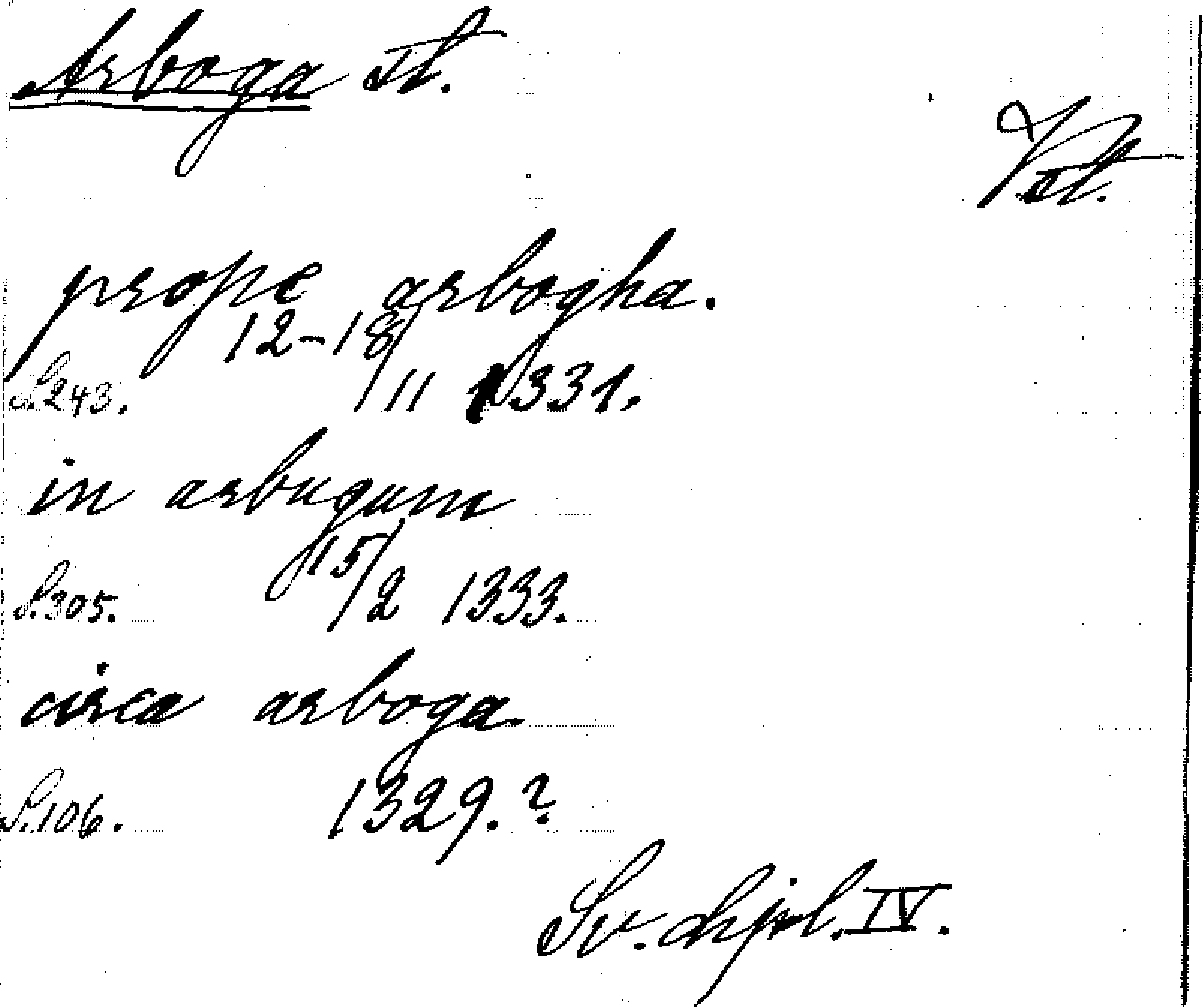 Arboga st.
Vstl.
prope arbogha.
12-18/11 1331.
S. 243.
in arbugum
15/2 1333.
S. 305.
circa arboga.
S. 106. 1329.?
Sv. dipl. IV.